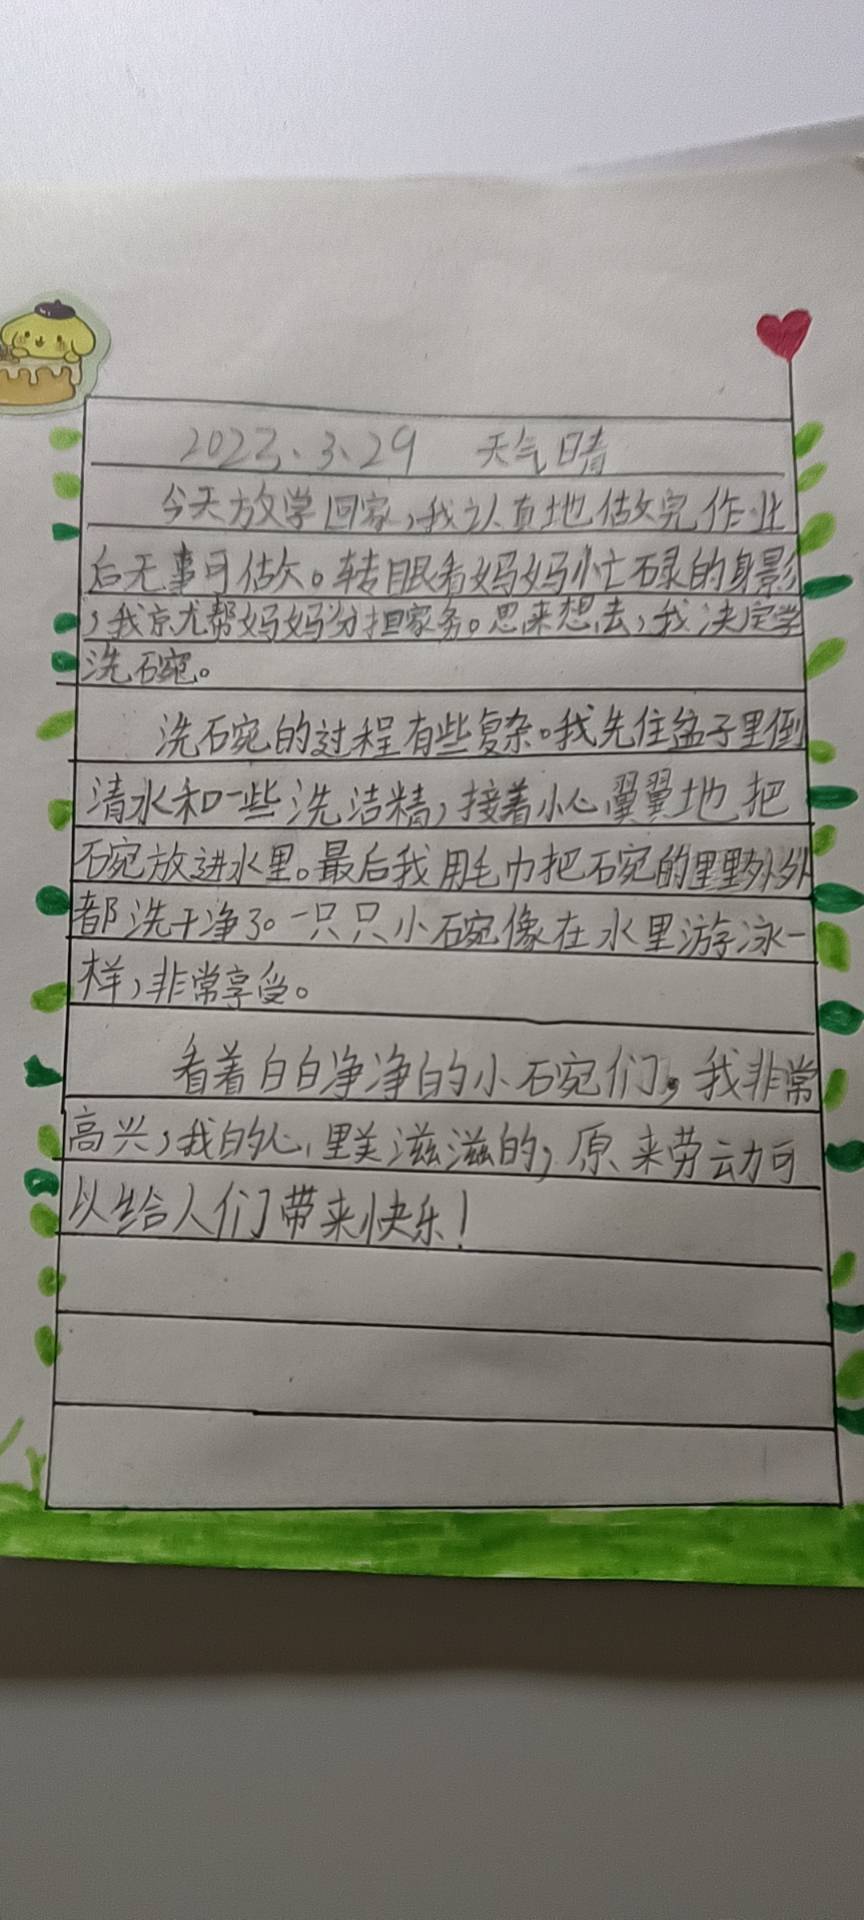 2023.3.29 天气晴
今天放学回家,我认真地做完作业
后无事可做。转眼看妈妈忙碌的身影
,我就帮妈妈分担家务。思来想去,我决定学
洗碗。
洗碗的过程有些复杂。我先往盆子里倒
清水和一些洗洁精,接着小心翼翼地把
碗放进水里。最后我用毛巾把碗的里里外外
都洗干净了。一只只小碗像在水里游泳一
样,非常享受。
看着白白净净的小碗们,我非常
高兴,我的心里美滋滋的,原来劳动可
以给人们带来快乐!